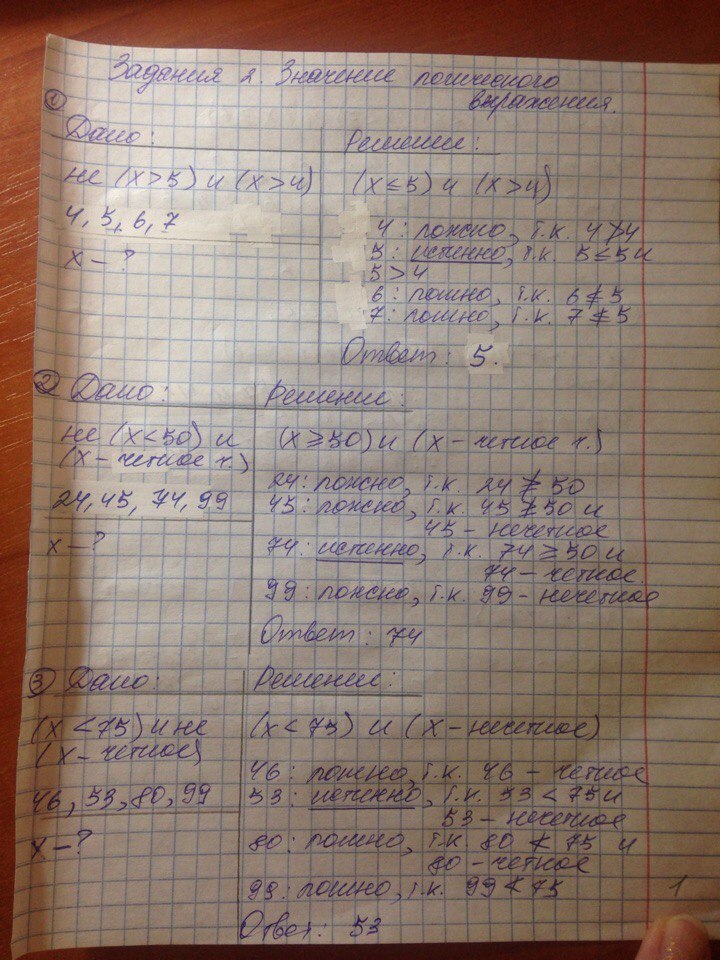 Задания 2. Значение логического
выражения.
①
Дано:
не (x>5) и (x>4)
4, 5, 6, 7
x - ?
Решение:
(x ≤ 5) и (x > 4)
4: ложно, т.к. 4 ≯ 4
5: истенно, т.к. 5 ≤ 5 и
5 > 4
6: ложно, т.к. 6 ≰ 5
7: ложно, т.к. 7 ≰ 5
Ответ: 5.
② Дано:
не (x < 50) и
(x - четное ч.)
24, 45, 74, 99
x - ?
Решение:
(x ≥ 50) и (x - четное ч.)
24: ложно, т.к. 24 ≱ 50
45: ложно, т.к. 45 ≱ 50 и
45 - нечетное
74: истенно, т.к. 74 ≥ 50 и
74 - четное.
99: ложно, т.к. 99 - нечетное
Ответ: 74
③ Дано:
(x < 75) и не
(x - четное)
46, 53, 80, 99
x - ?
Решение:
(x < 75) и (x - нечетное)
46: ложно, т.к. 46 - четное
53: истенно, т.к. 53 < 75 и
53 - нечетное
80: ложно, т.к. 80 ≮ 75 и
80 - четное
99: ложно, т.к. 99 ≮ 75
Ответ: 53
1